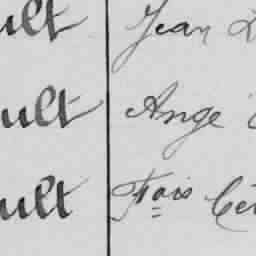 ult Jean
ult Ange
ult Fois